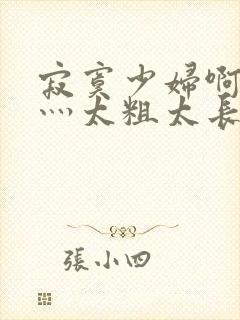 寂寞少婦啊
灬太粗太長
張小四